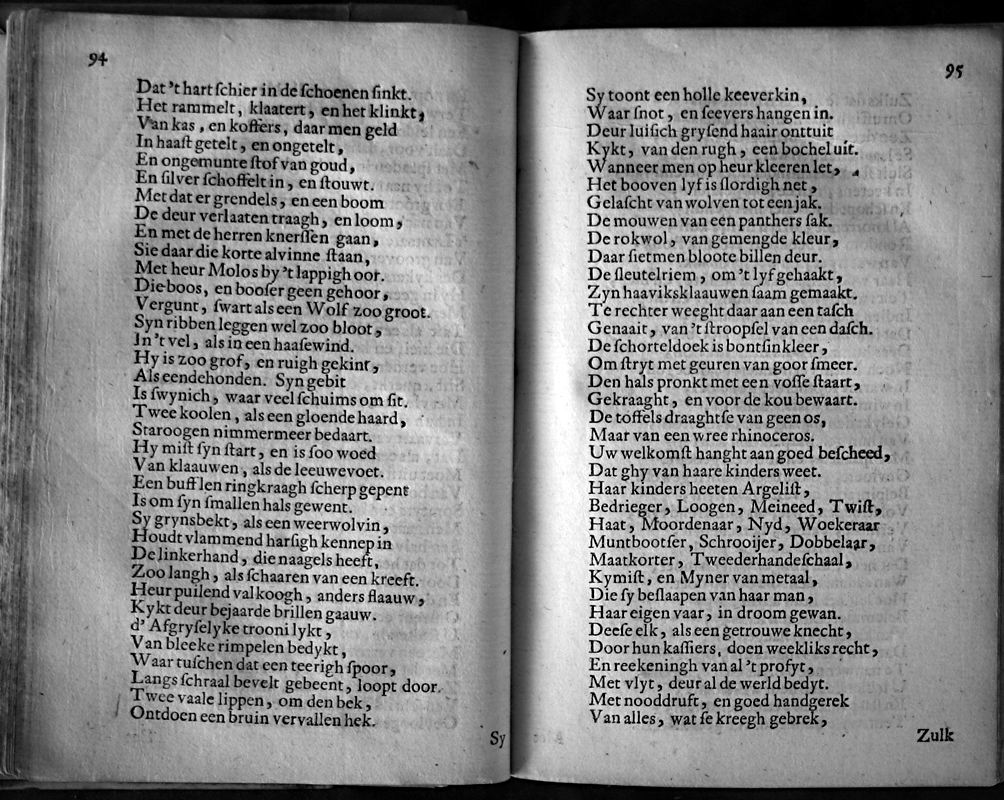 94
Dat 't hart ſchier in de ſchoenen ſinkt.
Het rammelt, klaatert, en het klinkt,
Van kas, en koffers, daar men geld
In haaſt getelt, en ongetelt,
En ongemunte ſtof van goud,
En ſilver ſchoffelt in, en ſtouwt.
Met dat er grendels, en een boom
De deur verlaaten traagh, en loom,
En met de herren knerſſen gaan,
Sie daar die korte alvinne ſtaan,
Met heur Molos by 't lappigh oor.
Die boos, en booſer geen gehoor,
Vergunt, ſwart als een Wolf zoo groot.
Syn ribben leggen wel zoo bloot,
In 't vel, als in een haaſewind.
Hy is zoo grof, en ruigh gekint,
Als eendehonden. Syn gebit
Is ſwynich, waar veel ſchuims om ſit.
Twee koolen, als een gloende haard,
Staroogen nimmermeer bedaart.
Hy miſt ſyn ſtart, en is ſoo woed
Van klaauwen, als de leeuwevoet.
Een bufflen ringkraagh ſcherp gepent
Is om ſyn ſmallen hals gewent.
Sy grynsbekt, als een weerwolvin,
Houdt vlammend harſigh kennep in
De linkerhand, die naagels heeft,
Zoo langh, als ſchaaren van een kreeft.
Heur puilend valkoogh, anders flaauw,
Kykt deur bejaarde brillen gaauw.
d' Afgryſelyke trooni lykt,
Van bleeke rimpelen bedykt,
Waar tuſchen dat een teerigh ſpoor,
Langs ſchraal bevelt gebeent, loopt door.
Twee vaale lippen, om den bek,
Ontdoen een bruin vervallen hek.
Sy
95
Sy toont een holle keeverkin,
Waar ſnot, en ſeevers hangen in.
Deur luiſich gryſend haair onttuit
Kykt, van den rugh, een bochel uit.
Wanneer men op heur kleeren let,
Het booven lyf is ſlordigh net,
Gelaſcht van wolven tot een jak.
De mouwen van een panthers ſak.
De rok wol, van gemengde kleur,
Daar ſietmen bloote billen deur.
De ſleutelriem, om 't lyf gehaakt,
Zyn haaviksklaauwen ſaam gemaakt.
Te rechter weeght daar aan een taſch
Genaait, van 't ſtroopſel van een daſch.
De ſchorteldoek is bontſinkleer,
Om ſtryt met geuren van goor ſmeer.
Den hals pronkt met een voſſe ſtaart,
Gekraaght, en voor de kou bewaart.
De toffels draaghtſe van geen os,
Maar van een wree rhinoceros.
Uw welkomſt hanght aan goed beſcheed,
Dat ghy van haare kinders weet.
Haar kinders heeten Argeliſt,
Bedrieger, Loogen, Meineed, Twiſt,
Haat, Moordenaar, Nyd, Woekeraar
Muntbootſer, Schrooijer, Dobbelaar,
Maatkorter, Tweederhandeſchaal,
Kymiſt, en Myner van metaal,
Die ſy beſlaapen van haar man,
Haar eigen vaar, in droom gewan.
Deeſe elk, als een getrouwe knecht,
Door hun kaſſiers, doen weekliks recht,
En reekeningh van al 't profyt,
Met vlyt, deur al de werld bedyt.
Met nooddruft, en goed handgerek
Van alles, wat ſe kreegh gebrek,
Zulk